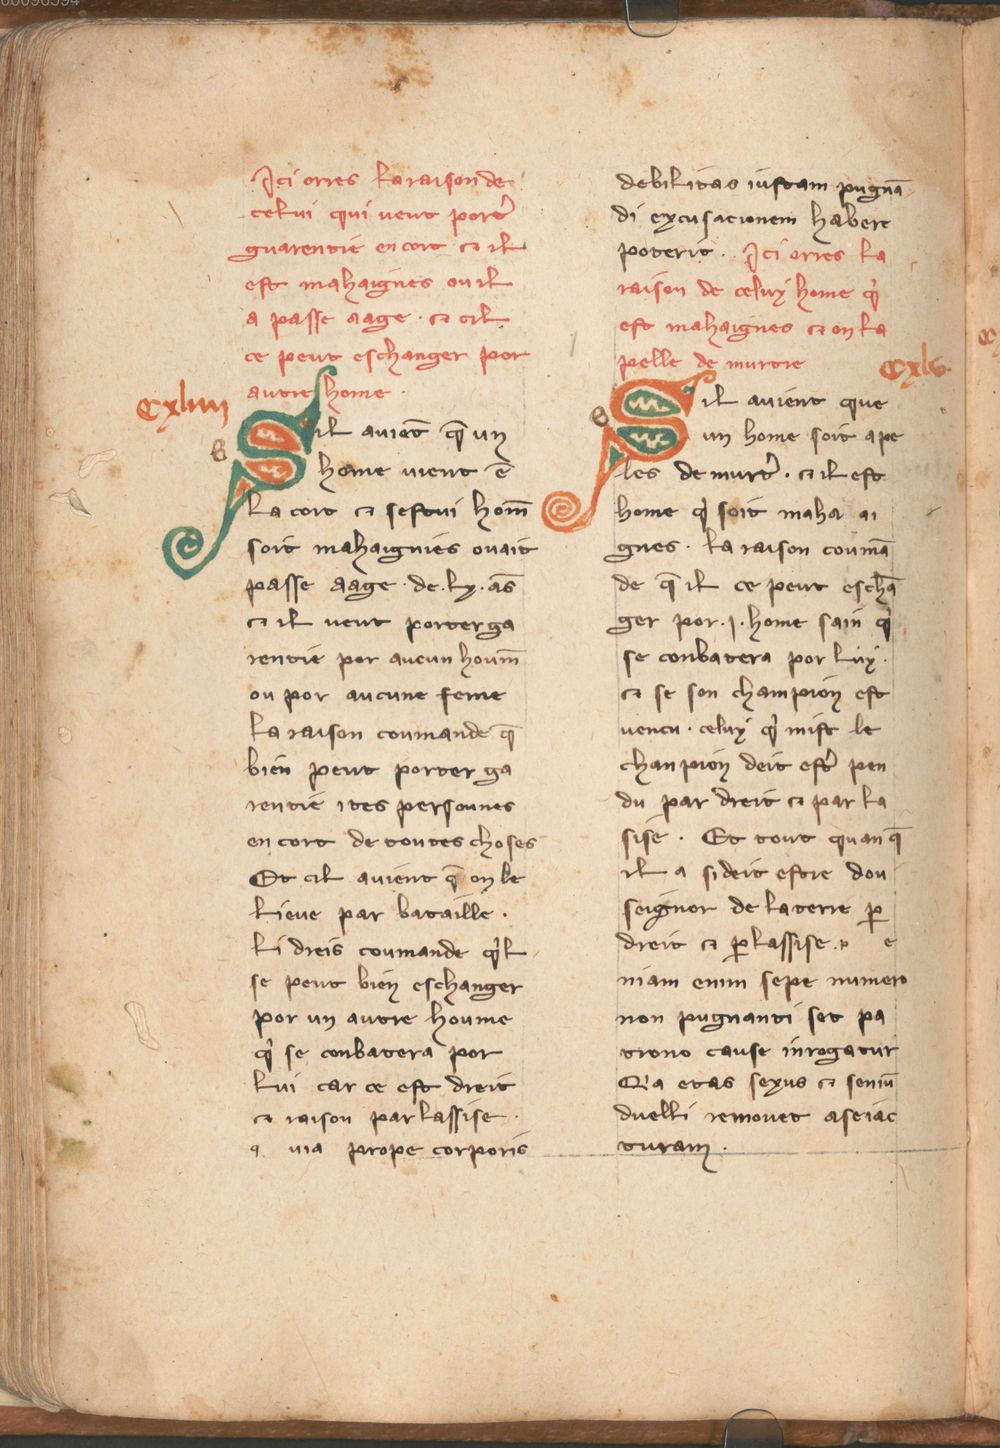 Ici orres la raison de
celui qui veut port̉
guarentie en cort ⁊ il
est mahaignes ou il
a passe aage · ⁊ cil
ce peut eschanger por
autre home ·
Cxliiii
Sil auiēt q̄ un
home vient ē
la cort ⁊ sestui hom̄
soit mahaignies ouait
passe aage · de · lx · ās
⁊ il veut porter ga
rentie por aucun houm̄
ou por aucune feme
la raison coumande q̄
bien peut porter ga
rentie ites persounes
en cort de toutes choses
Et cil auient q̄ on le
lieue par bataille ·
li dreis coumande q̉l
se peut bien eschanger
por un autre houme
q̉ se conbatera por
lui car ce est dreit
⁊ raison par lassise ·
q uia prope corporis
debilitas iustam pugnā
di excusacionem habere
poterit · Ici orres la
raison de celuy home q̉
est mahaignes ⁊ on la
pelle de murtre
Cxlv ·
Sil auient que
un home soit ape
les de murt̉ · ⁊ il est
home q̉ soit maha ai
gnes · la raison coumā
de q̄ il ce peut eschā
ger por · i · home sain q̉
se conbatera por luy ·
⁊ se son champion est
vencu · celuy q̉ mist le
chanpion deit est̉ pen
du par dreit ⁊ par la
sise · Et tout quanq̄
il a si deit estre dou
seignor de la terre ꝑ
dreit ⁊ ꝑ lassise · p e
niam enim sepe numero
non pugnanti set pa
trono cause inrogatur
Qa etas sexus ⁊ seniū
duelli remouet aseiac
turam ·